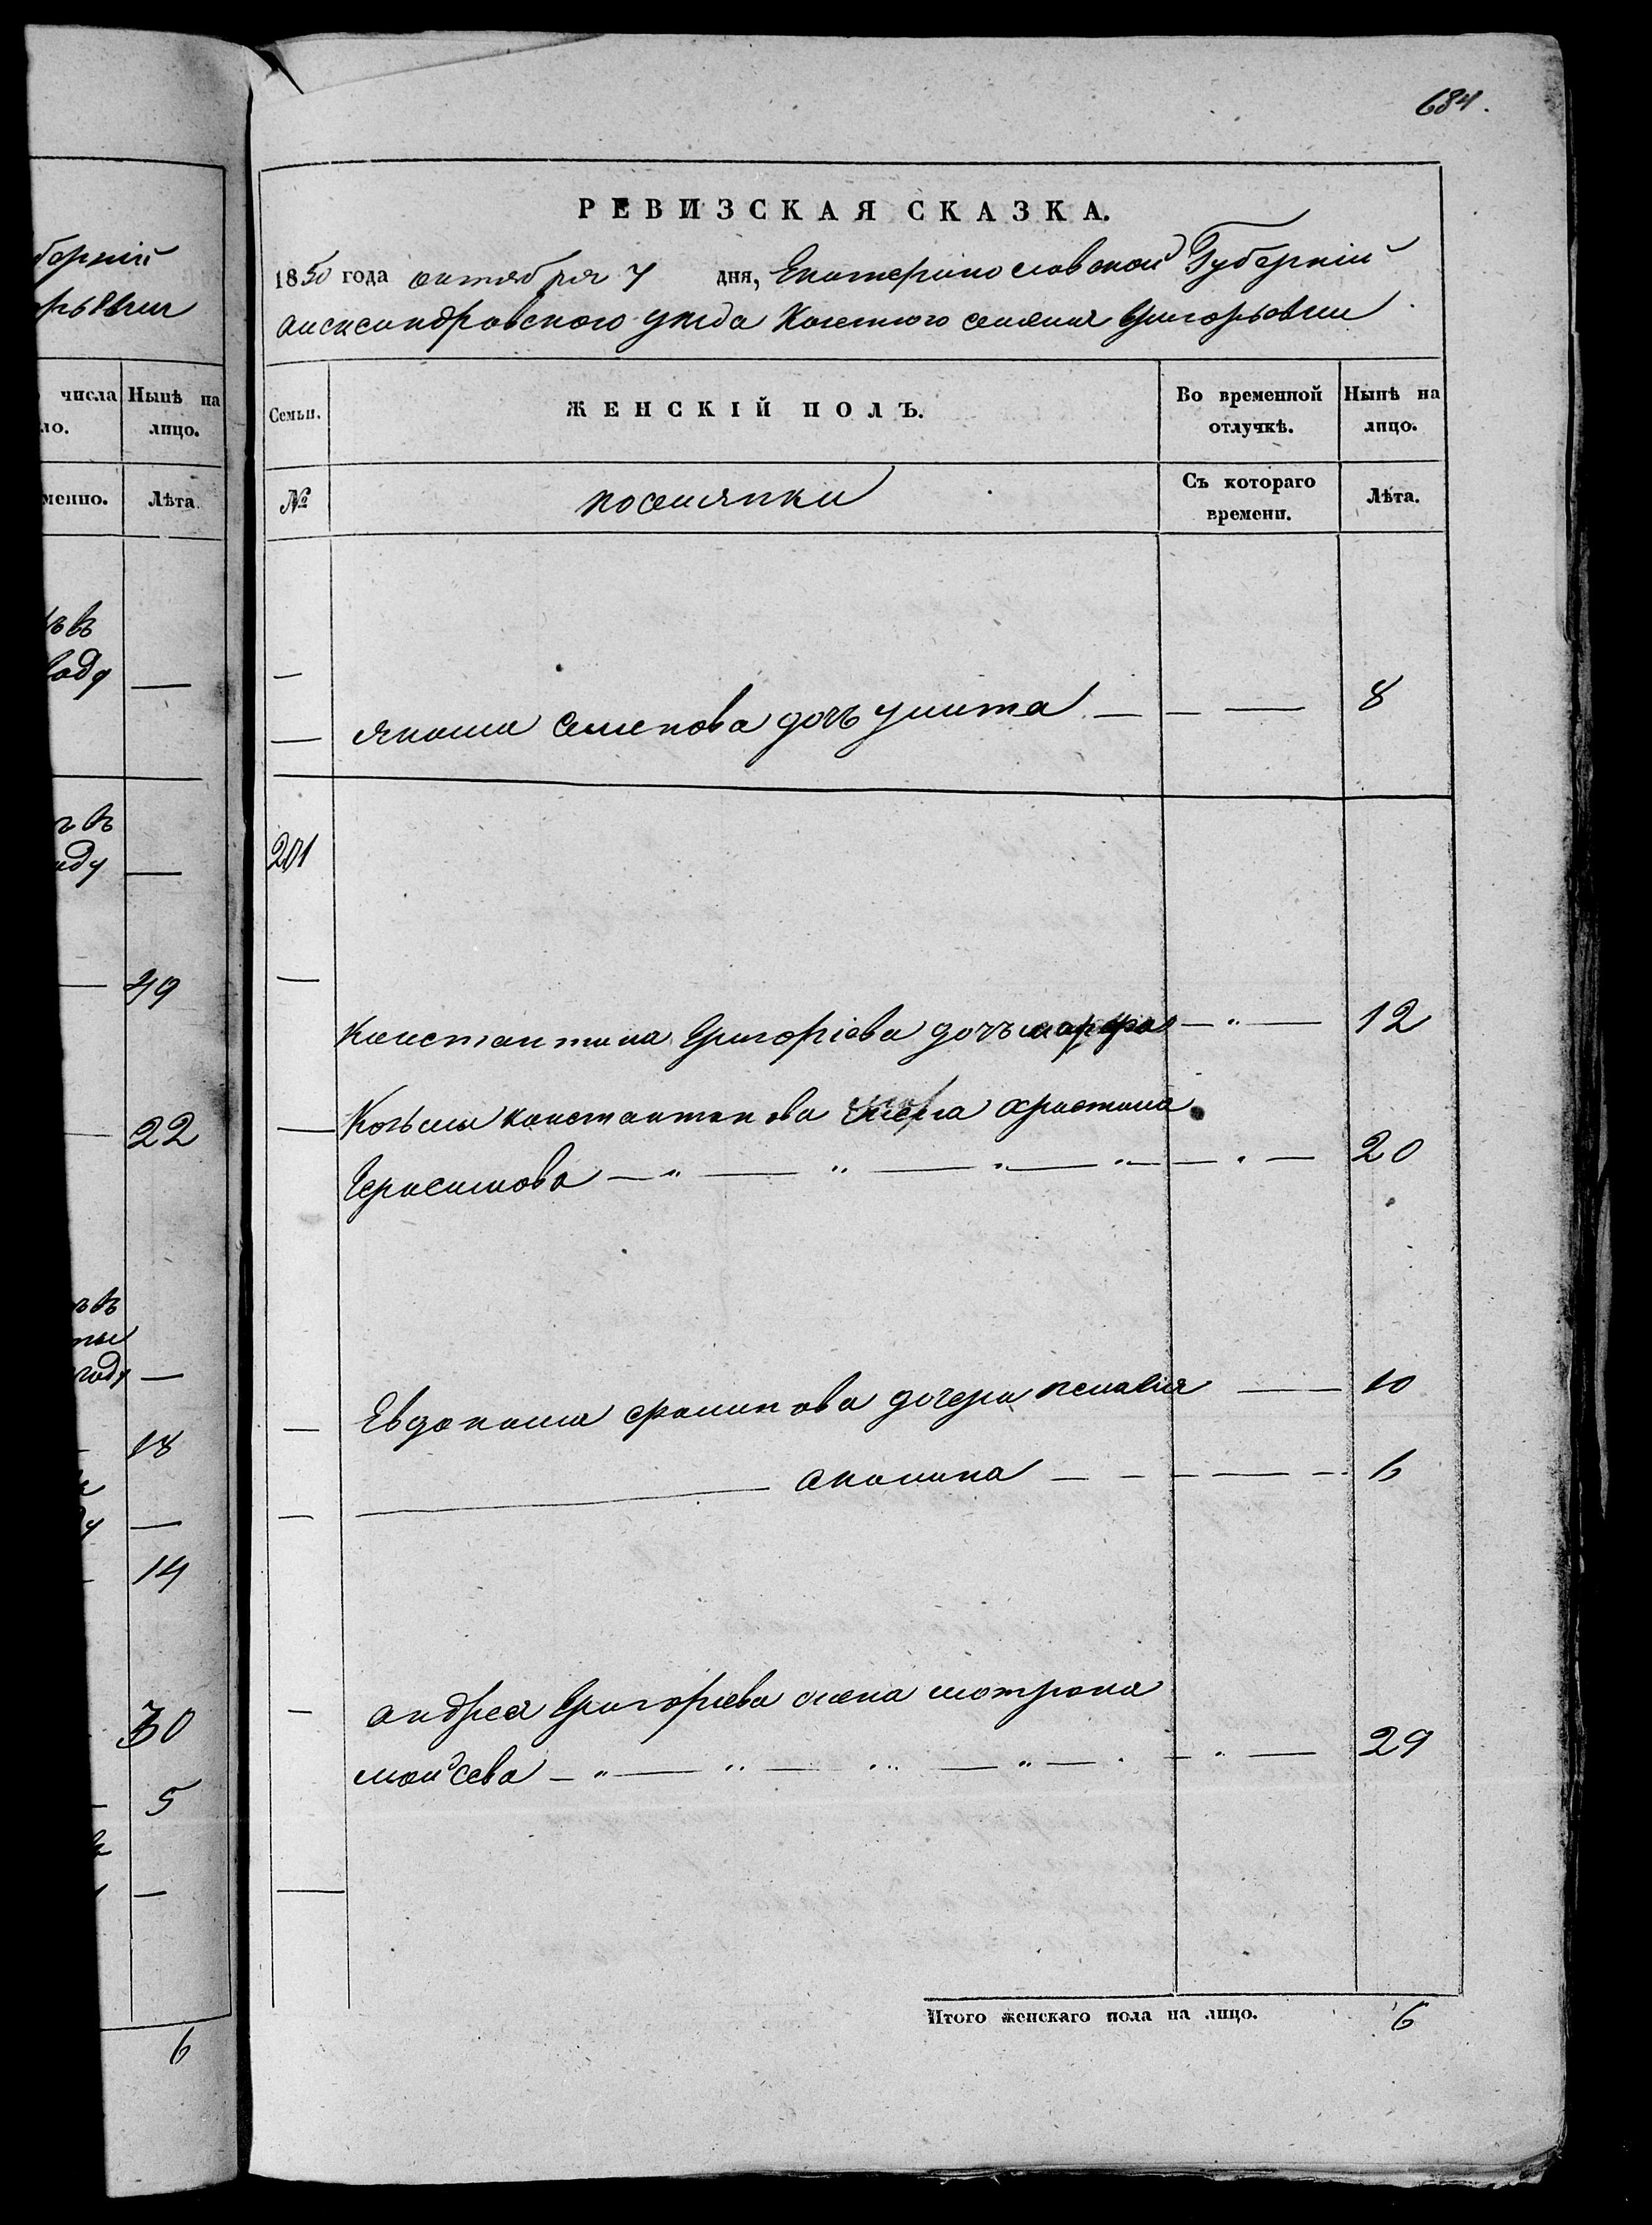 684.
РЕВИЗСКАЯ СКАЗКА.
1850 года октября 7 дня, Екатеринославской Губерніи
александровского уезда Казенного селения Григорьевки
Семьи.
ЖЕНСКІЙ ПОЛЪ.
Во временной отлучкѣ.
Нынѣ на лицо.
№
поселянки
Съ котораго времени.
Лѣта.
— Якима Семенова дочь улита — — — 8
201
— Константина Григоріева дочь марфа — " — 12
— Козьмы константинова жена христина
Герасимова — " — " — " — " — " — 20
— Евдокима фомы нова дочери пелагия — 10
— акилина — — — — 6
— андрея Григорьева жена мотрона
моисева — " — " — " — " — " — 29
Итого женскаго пола на лицо. 6
берніи
рьевки
числа
ло.
Нынѣ на лицо.
менно.
Лѣта.
ъ въ
году —
ъ въ
оду —
— 49
— 22
ъ въ
ты
году —
18
—
14
30
5
—
6